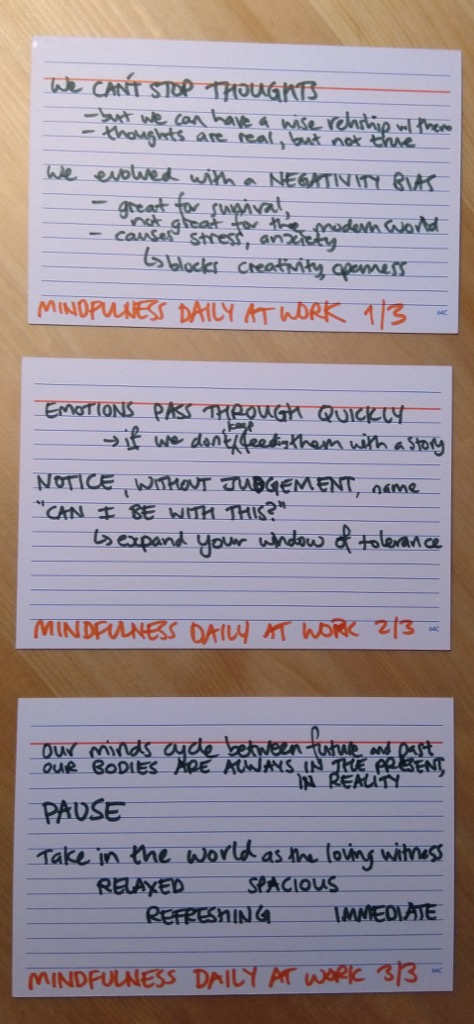 We CAN'T STOP THOUGHTS
- but we can have a wise reltship w/ them
- thoughts are real, but not true
We evolved with a NEGATIVITY BIAS
- great for survival,
not great for the modern world
- causes stress, anxiety
↳ blocks creativity, openness
MINDFULNESS DAILY AT WORK 1/3
EMOTIONS PASS THROUGH QUICKLY
→ if we don't keep feeding them with a story
NOTICE, WITHOUT JUDGEMENT, name
"CAN I BE WITH THIS?"
↳ expand your window of tolerance
MINDFULNESS DAILY AT WORK 2/3
our minds cycle between future and past
OUR BODIES ARE ALWAYS IN THE PRESENT,
IN REALITY
PAUSE
Take in the world as the loving witness
RELAXED SPACIOUS
REFRESHING IMMEDIATE
MINDFULNESS DAILY AT WORK 3/3